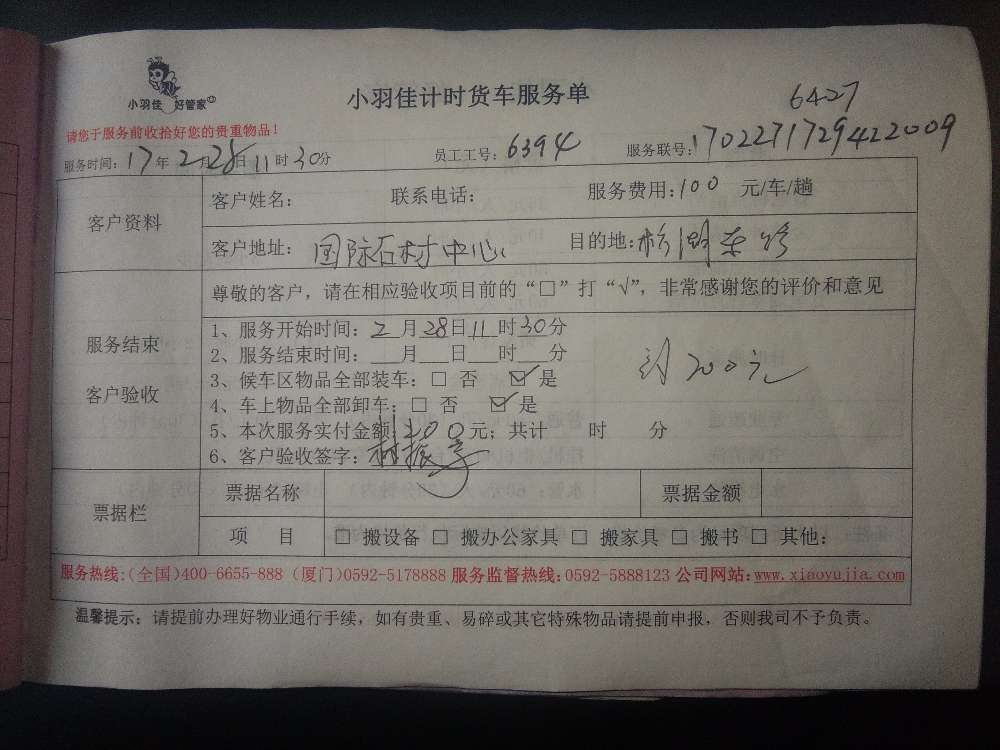 小羽佳 好管家
小羽佳计时货车服务单
6427
请您于服务前收拾好您的贵重物品！
服务时间：17年2月28日11时30分 员工工号：6394 服务联号：1702271729422009
客户资料
客户姓名： 联系电话： 服务费用：100 元/车/趟
客户地址：国际石材中心 目的地：杉湖东路
尊敬的客户，请在相应验收项目前的“□”打“√”，非常感谢您的评价和意见
服务结束
客户验收
1、服务开始时间：2月28日11时30分
2、服务结束时间：___月___日___时___分
3、候车区物品全部装车：□ 否 ☑ 是
4、车上物品全部卸车：□ 否 ☑ 是
5、本次服务实付金额200元；共计 时 分
6、客户验收签字：
200元
票据栏
票据名称 票据金额
项 目 □ 搬设备 □ 搬办公家具 □ 搬家具 □ 搬书 □ 其他：
服务热线：(全国)400-6655-888 (厦门)0592-5178888 服务监督热线：0592-5888123 公司网站：www.xiaoyujia.com
温馨提示：请提前办理好物业通行手续，如有贵重、易碎或其它特殊物品请提前申报，否则我司不予负责。